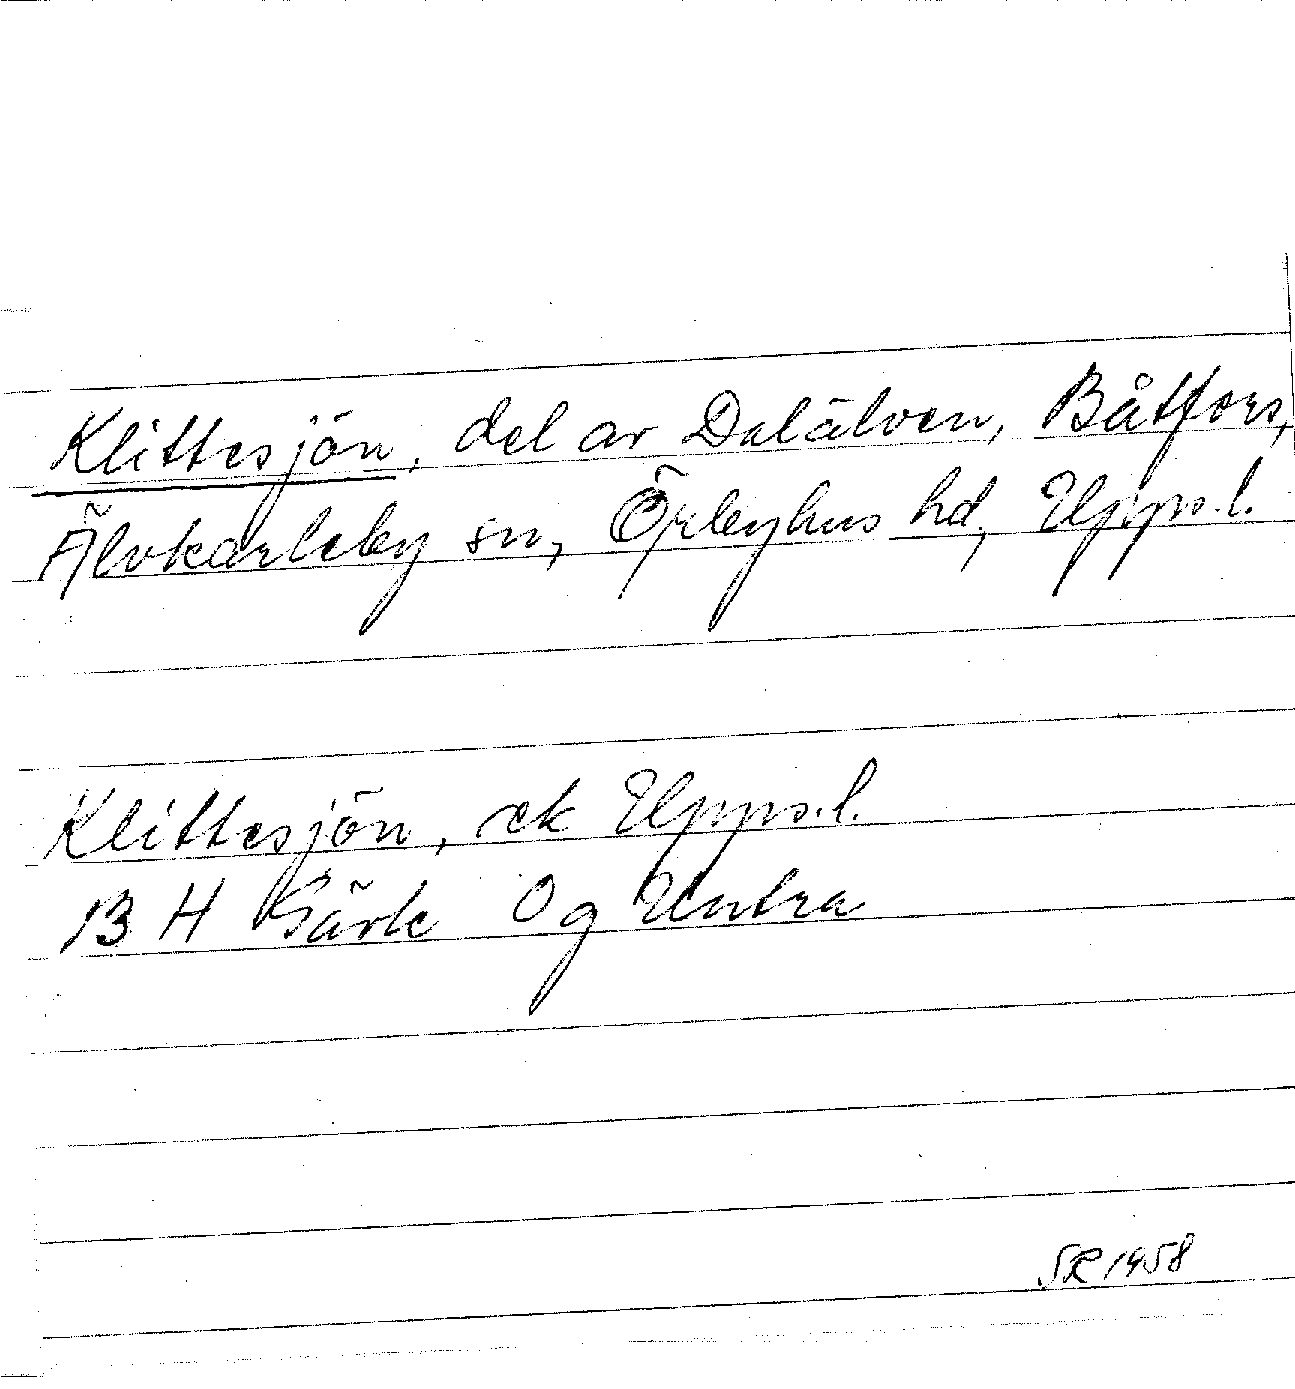 Klittesjön, del av Dalälven, Båtfors,
Älvkarleby sn, Örbyhus hd, Upps.l.
Klittesjön, ek Upps.l.
B H Särle Og Untra
SR 1958